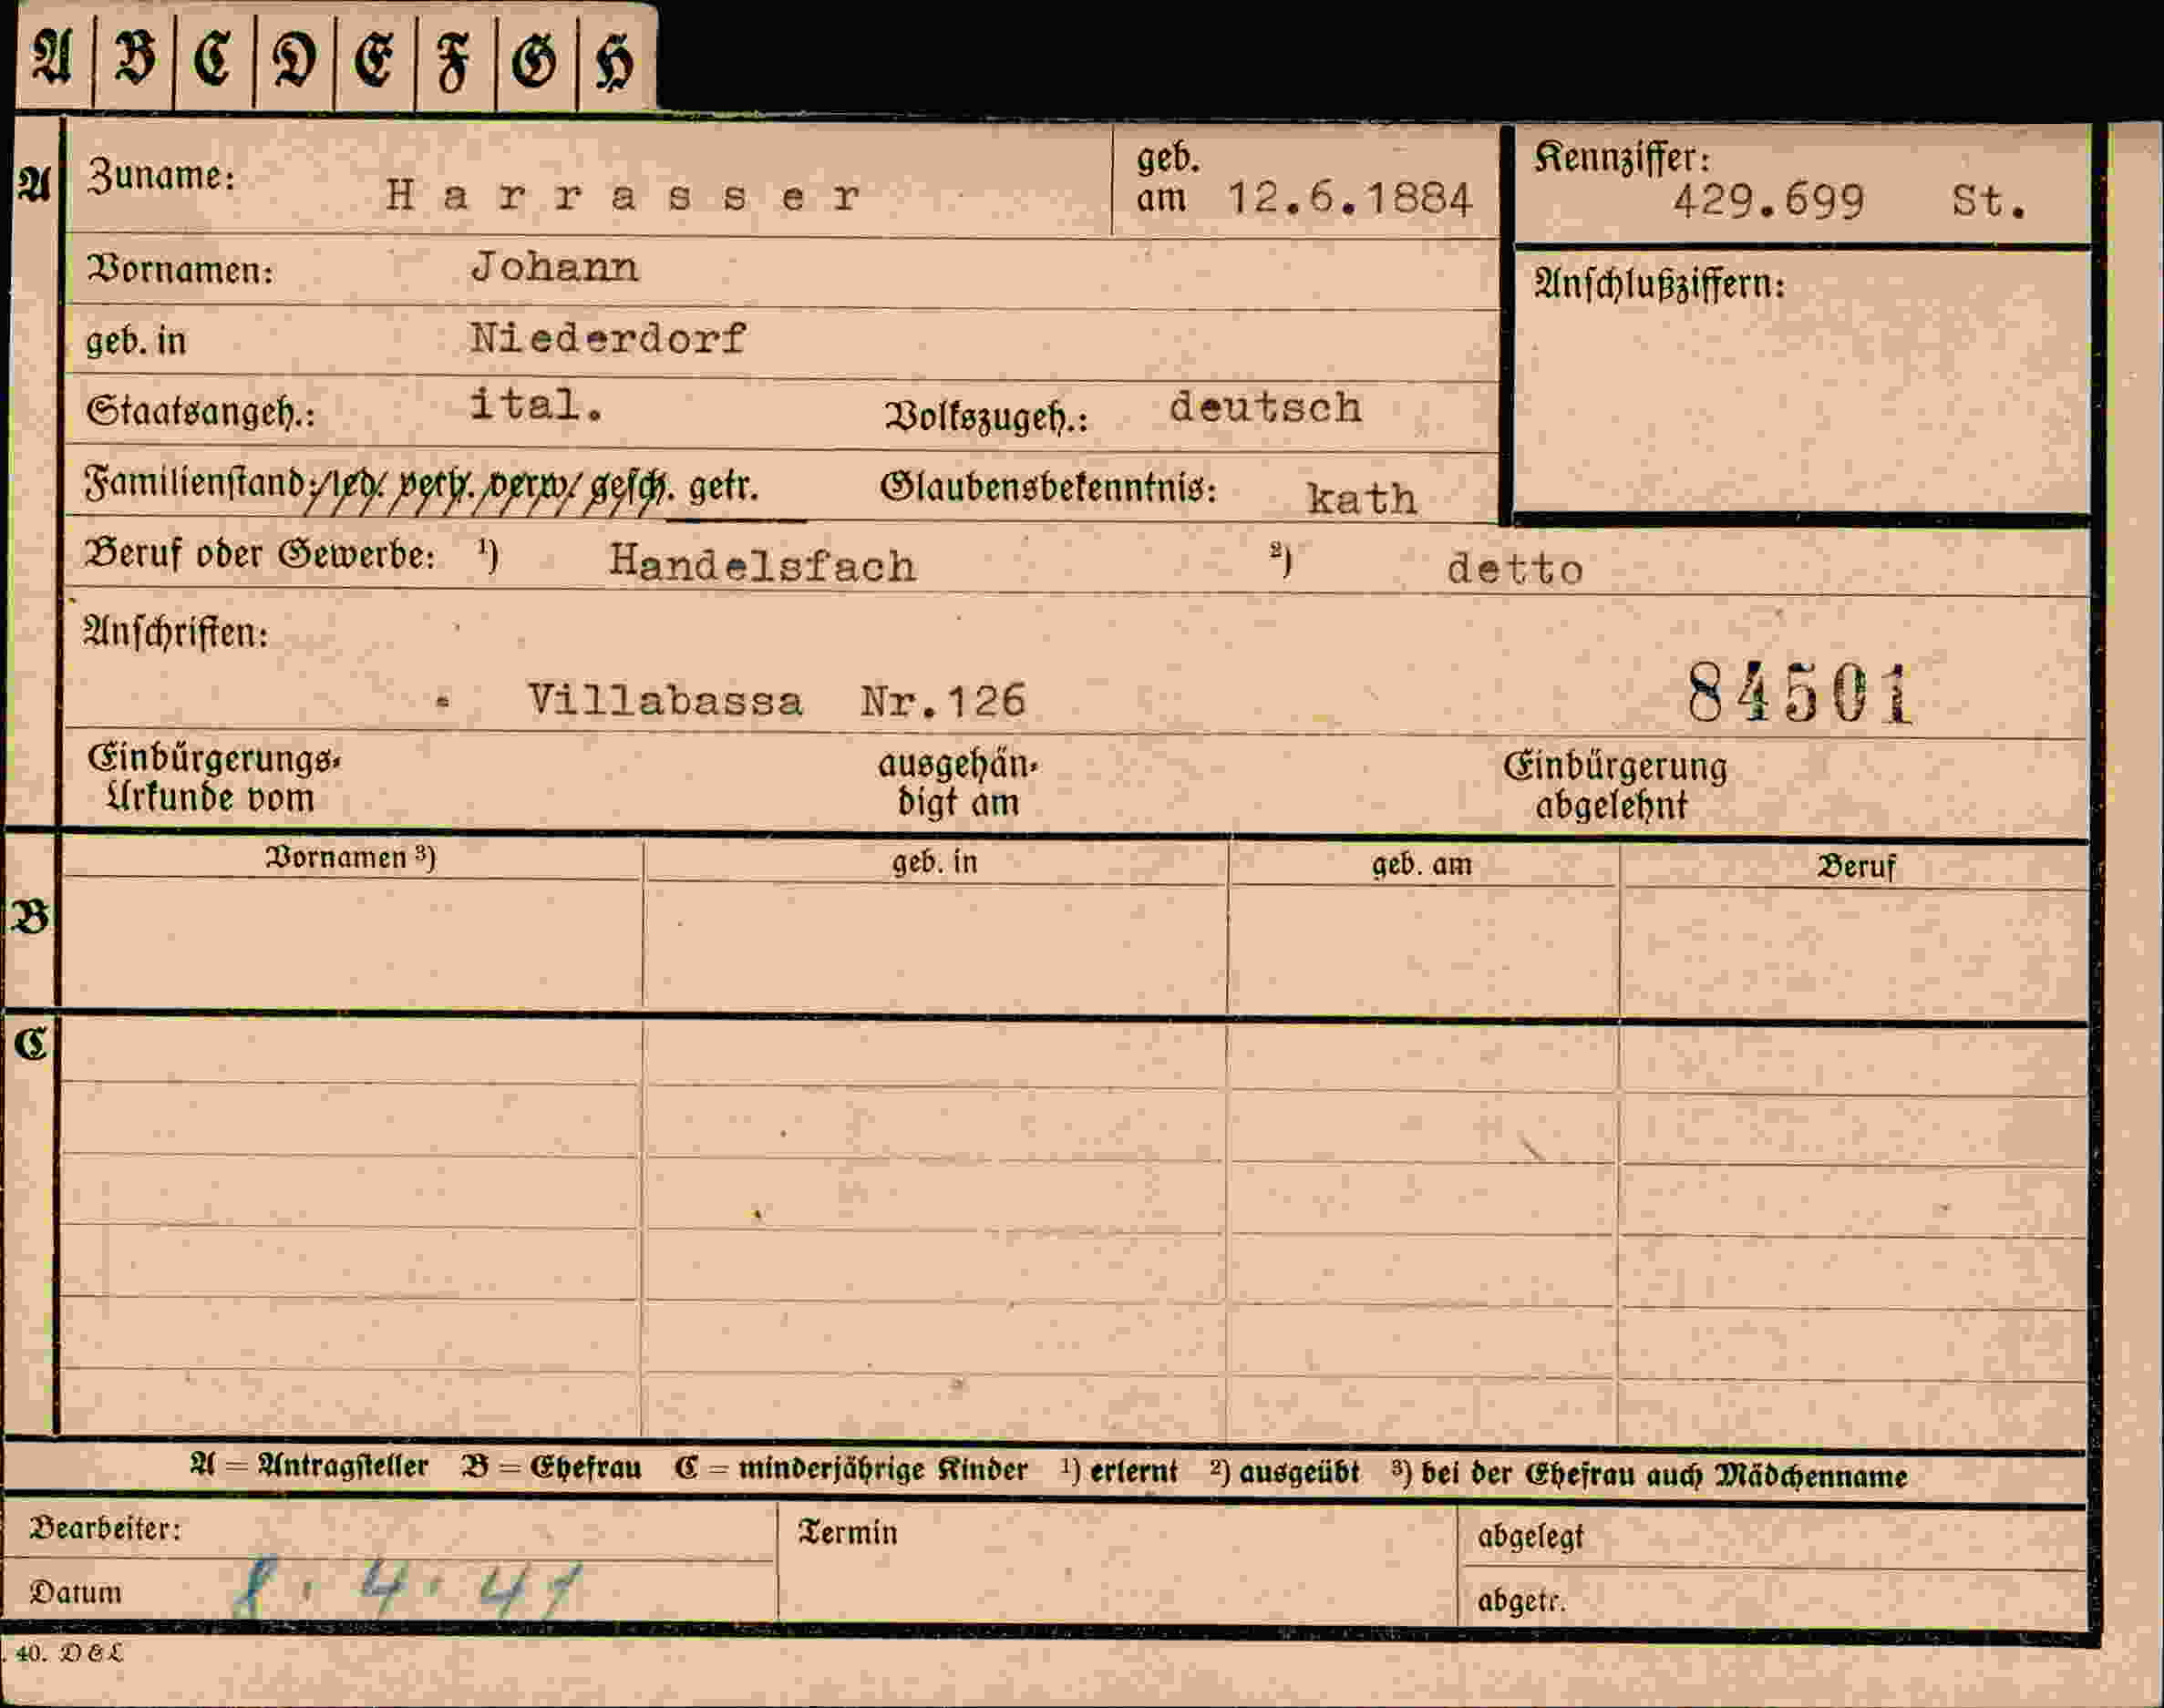 A B C D E F G H
A
Zuname: Harrasser geb. am 12.6.1884
Kennziffer: 429.699 St.
Vornamen: Johann
Anschlußziffern:
geb. in Niederdorf
Staatsangeh.: ital. Volkszugeh.: deutsch
Familienstand: led. verh. verw. gesch. getr. Glaubensbekenntnis: kath
Beruf oder Gewerbe: ¹) Handelsfach ²) detto
Anschriften:
Villabassa Nr.126 84501
Einbürgerungs-
Urkunde vom
ausgehän-
digt am
Einbürgerung
abgelehnt
Vornamen ³) geb. in geb. am Beruf
B
C
A = Antragsteller B = Ehefrau C = minderjährige Kinder ¹) erlernt ²) ausgeübt ³) bei der Ehefrau auch Mädchenname
Bearbeiter: Termin abgelegt
Datum 8.4.41 abgetr.
. 40. D & L